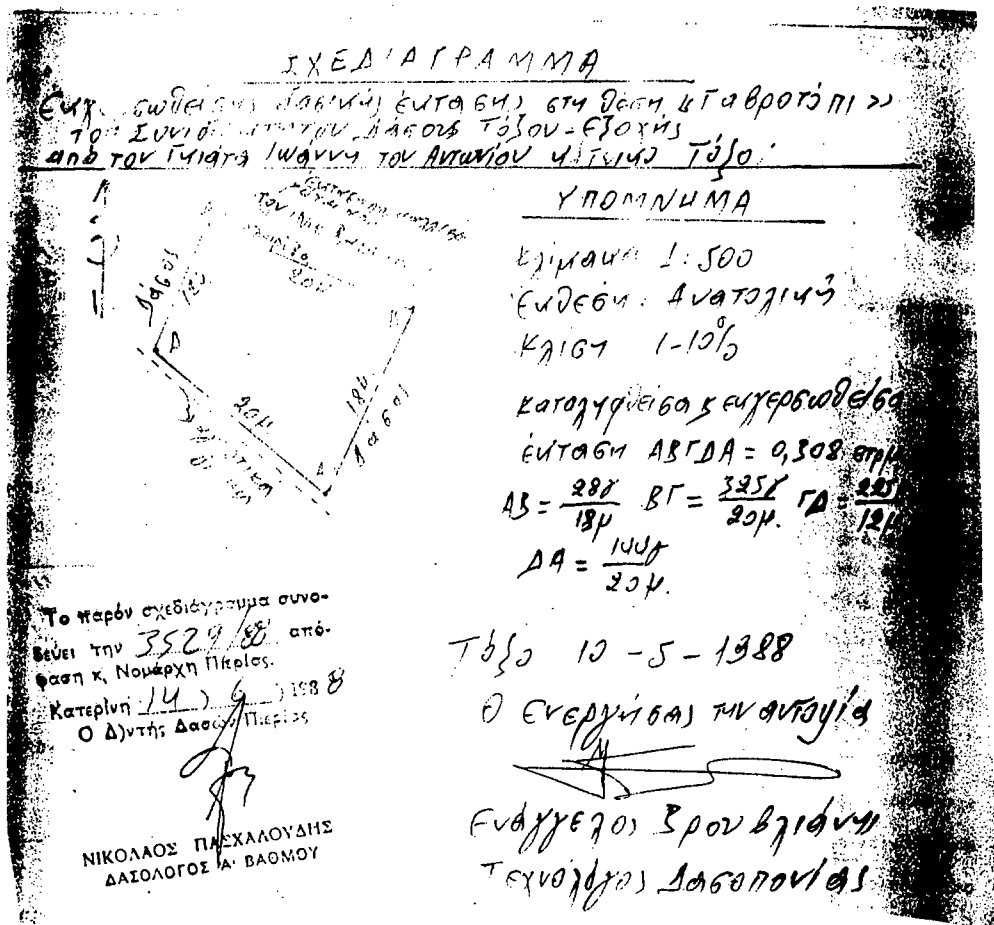 ΣΧΕΔΙΑΓΡΑΜΜΑ
δασικής έκτασης στη θέση «Γαβροτόπι»
του Δάσους Τόξου-Εξοχής
από τον Γκιάτα Ιωάννη του Αντωνίου Τόξο.
ΥΠΟΜΝΗΜΑ
Κλίμακα 1:500
Έκθεση: Ανατολική
Κλίση 1-10%
Καταληφθείσα κ εκχερσωθείσα
έκταση ΑΒΓΔΑ = 0,308 στρμ
ΑΒ = 28γ/18μ ΒΓ = 325γ/20μ. ΓΔ = 225/12μ
ΔΑ = 144γ/20μ.
Δάσος
12μ
20μ
Δ
20μ
Α
18μ
Δάσος
Β
Τόξο 10-5-1988
Ο ενεργήσας την αυτοψία
Ευάγγελος Βρουβλιάνης
Τεχνολόγος Δασοπονίας
Το παρόν σχεδιάγραμμα συνο-
δεύει την 3529/88 από-
φαση κ, Νομάρχη Πιερίας.
Κατερίνη 14) 6 )198 8
Ο Δ)ντής Δασών Πιερίας
ΝΙΚΟΛΑΟΣ ΠΑΣΧΑΛΟΥΔΗΣ
ΔΑΣΟΛΟΓΟΣ Α' ΒΑΘΜΟΥ